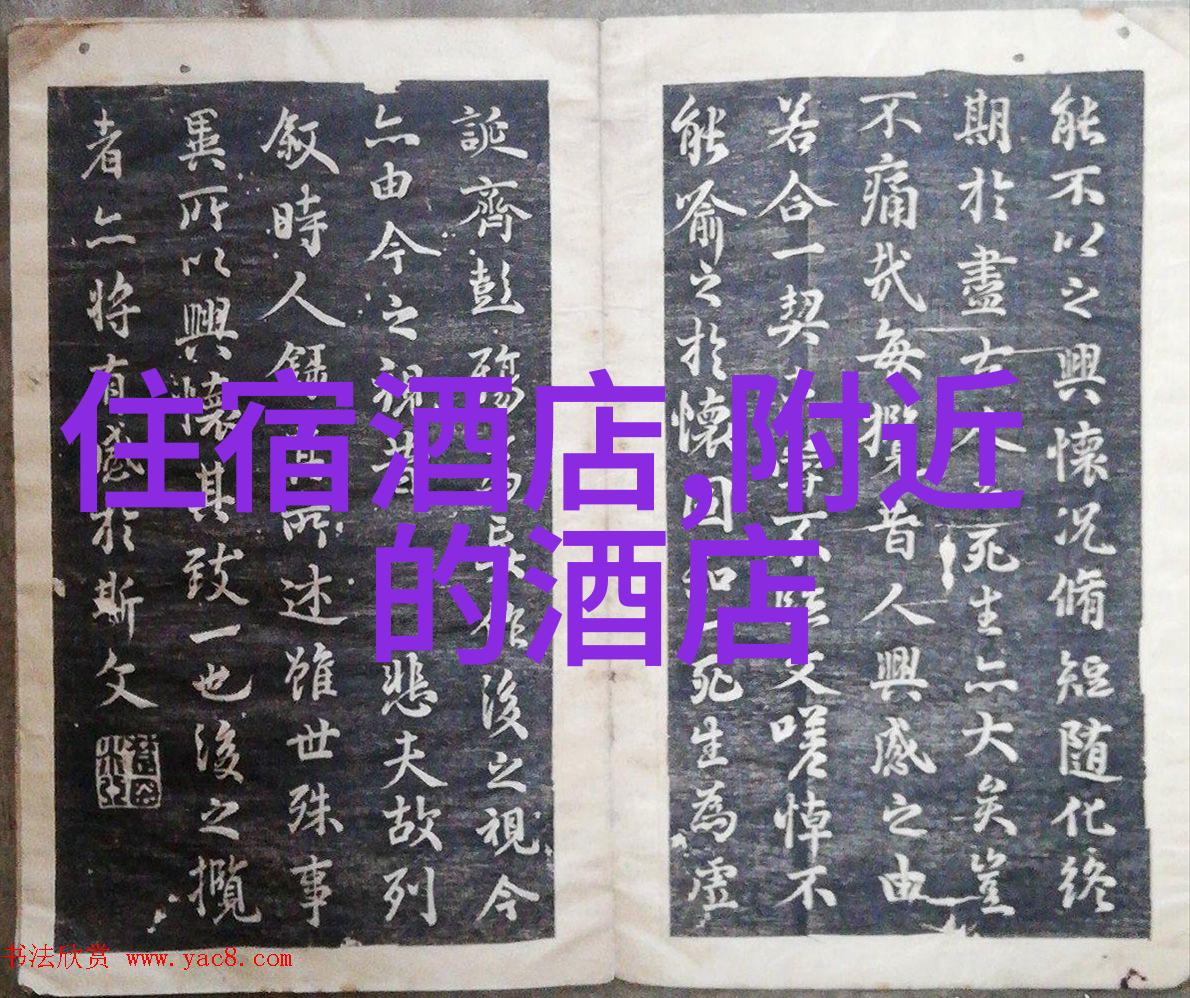 住宿酒店,附近
的酒店
能不以之興懷况脩短随化終
期於盡死生亦大矣豈
不痛哉每攬昔人興感之由
若合一契不文嗟悼不
能喻之於懷固死生為虛
誕齊彭殤作後之視今
亦由今之視昔悲夫故列
敘時人錄所述雖世殊事
異所以興懷其致一也後之攬
者亦将有感於斯文
书法欣赏 www.yac8.com